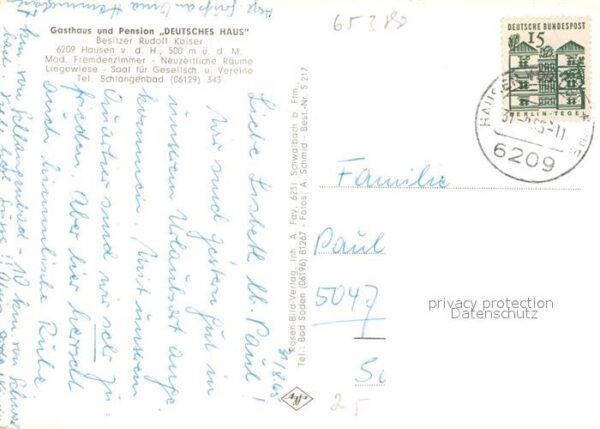 Gasthaus und Pension „DEUTSCHES HAUS"
Besitzer Rudolf Kaiser
6209 Hausen v. d. H., 500 m ü. d. M.
Mod. Fremdenzimmer - Neuzeitliche Räume
Liegewiese - Saal für Gesellsch. u. Vereine
Tel. Schlangenbad (06129) 343
31/8.65
Liebe Lisbeth u. Paul!
Wir sind gestern gut in
unserem Urlaubsort ange-
kommen. Mit unserem
Quartier sind wir sehr zu-
frieden. Aber hier herrscht
auch himmlische Ruhe.
km von Schlangenbad - 10 km von
Rosen-Bild-Verlag, Inh. A. Fay, 6231 Schwalbach b. Ffm.
Tel.: Bad Soden (06196) 81267 - Fotos: A. Schmid - Best.-Nr. S 217
DEUTSCHE BUNDESPOST
15
BERLIN-TEGEL
6209
Familie
Paul
5047
privacy protection
Datenschutz
25